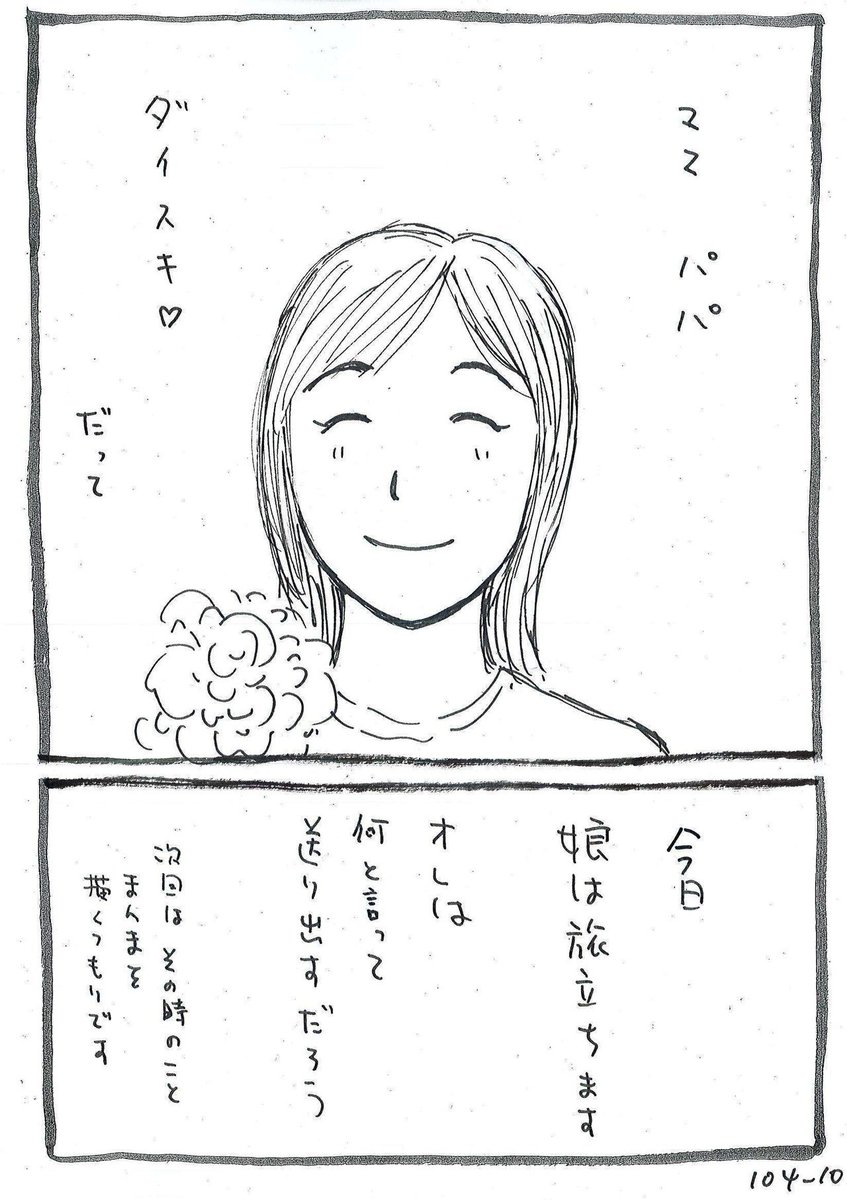 ママ パパ
ダイスキ♡
だって
今日
娘は旅立ちます
オレは
何と言って
送り出すだろう
次回は その時のこと
まんまを
描くつもりです
104-10